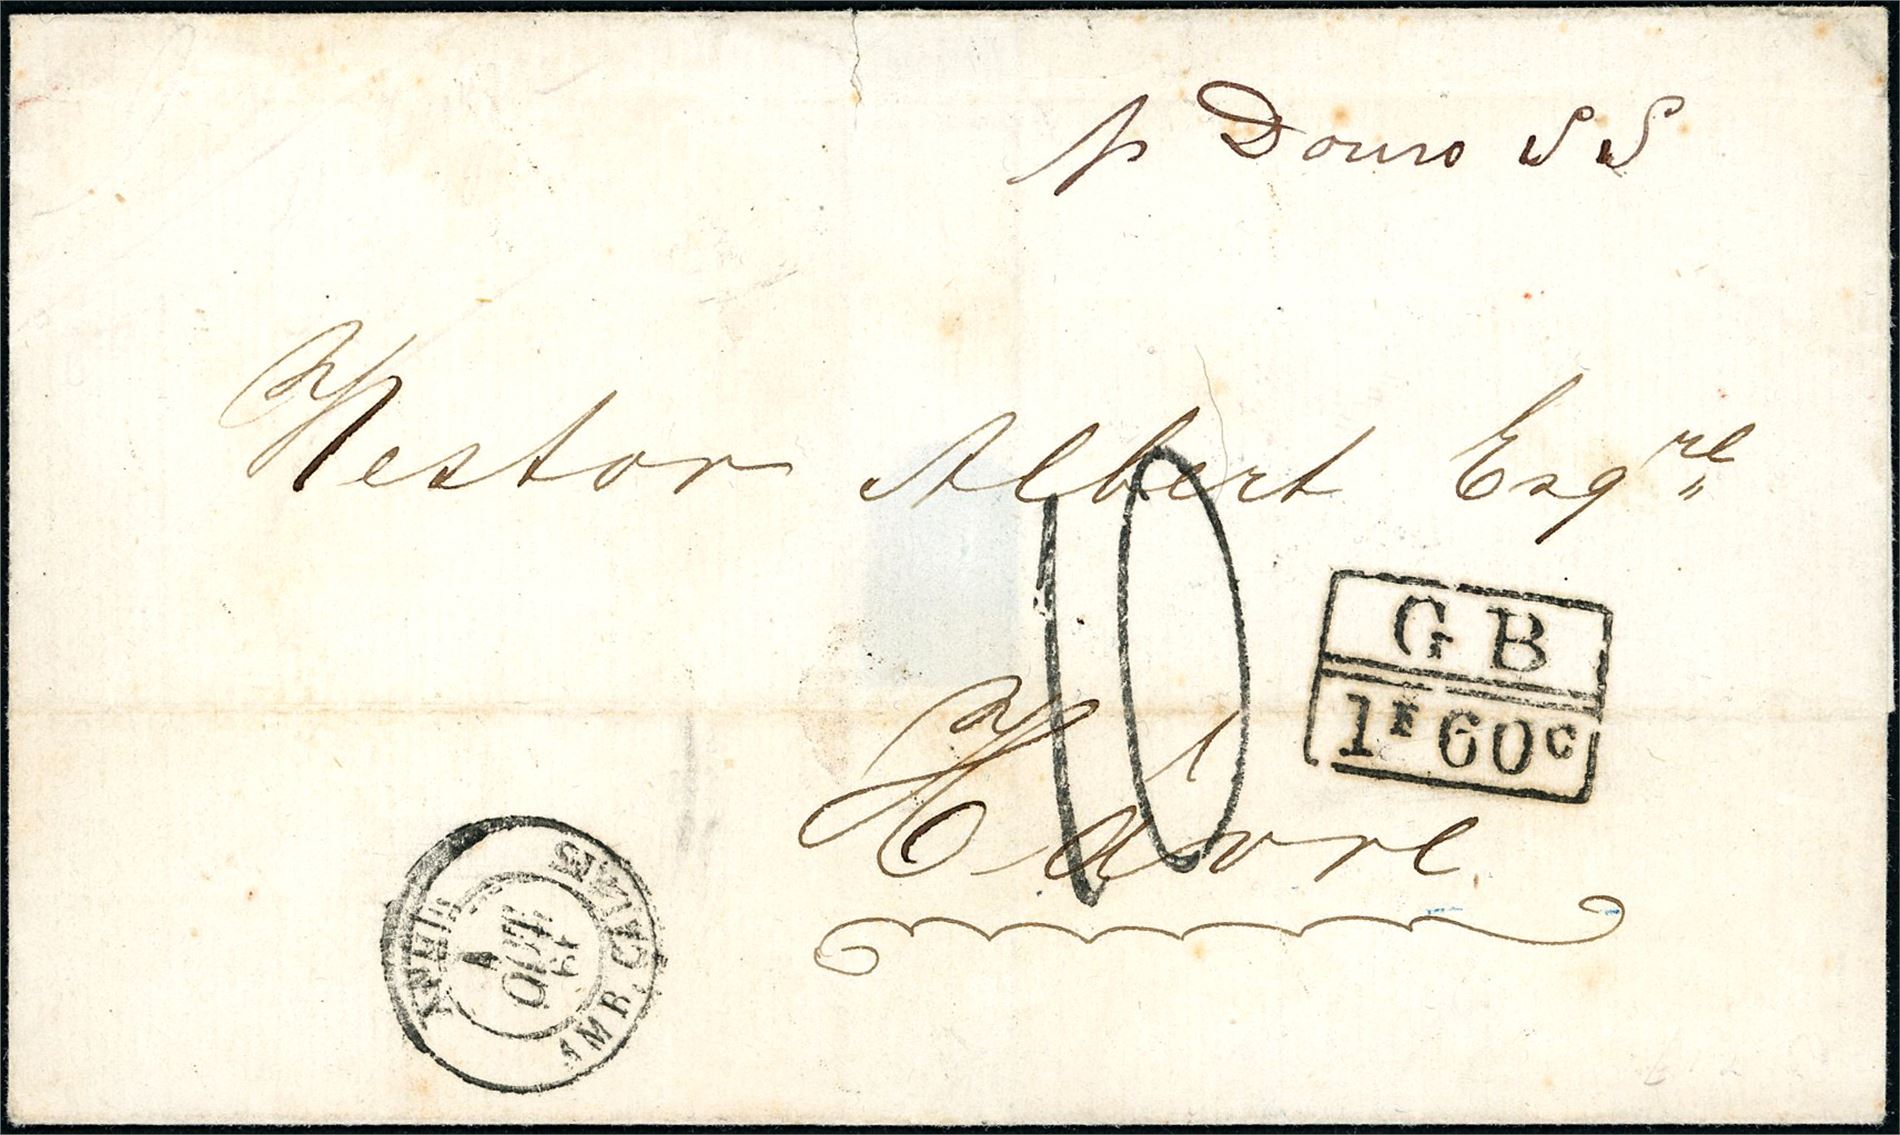 p Douro SS
Nestor Albert Esq^re
10
G B
1^F 60^C
Havre
AMB. CALAIS
19
AOUT